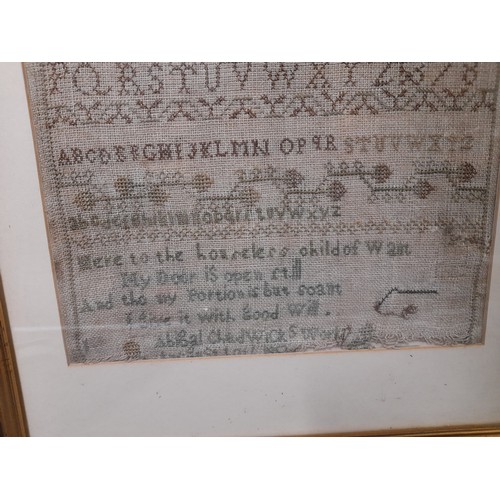 PQRSTUVWXYZ
ABCDEFGHIJKLMN OPQR STUVWXYZ
abcdefghiklmnopqrstuvwxyz
Here to the houseless child of Want
My Door iS open still
And tho my Portion is but scant
I give it With Good Will.
Abigal Chadwick